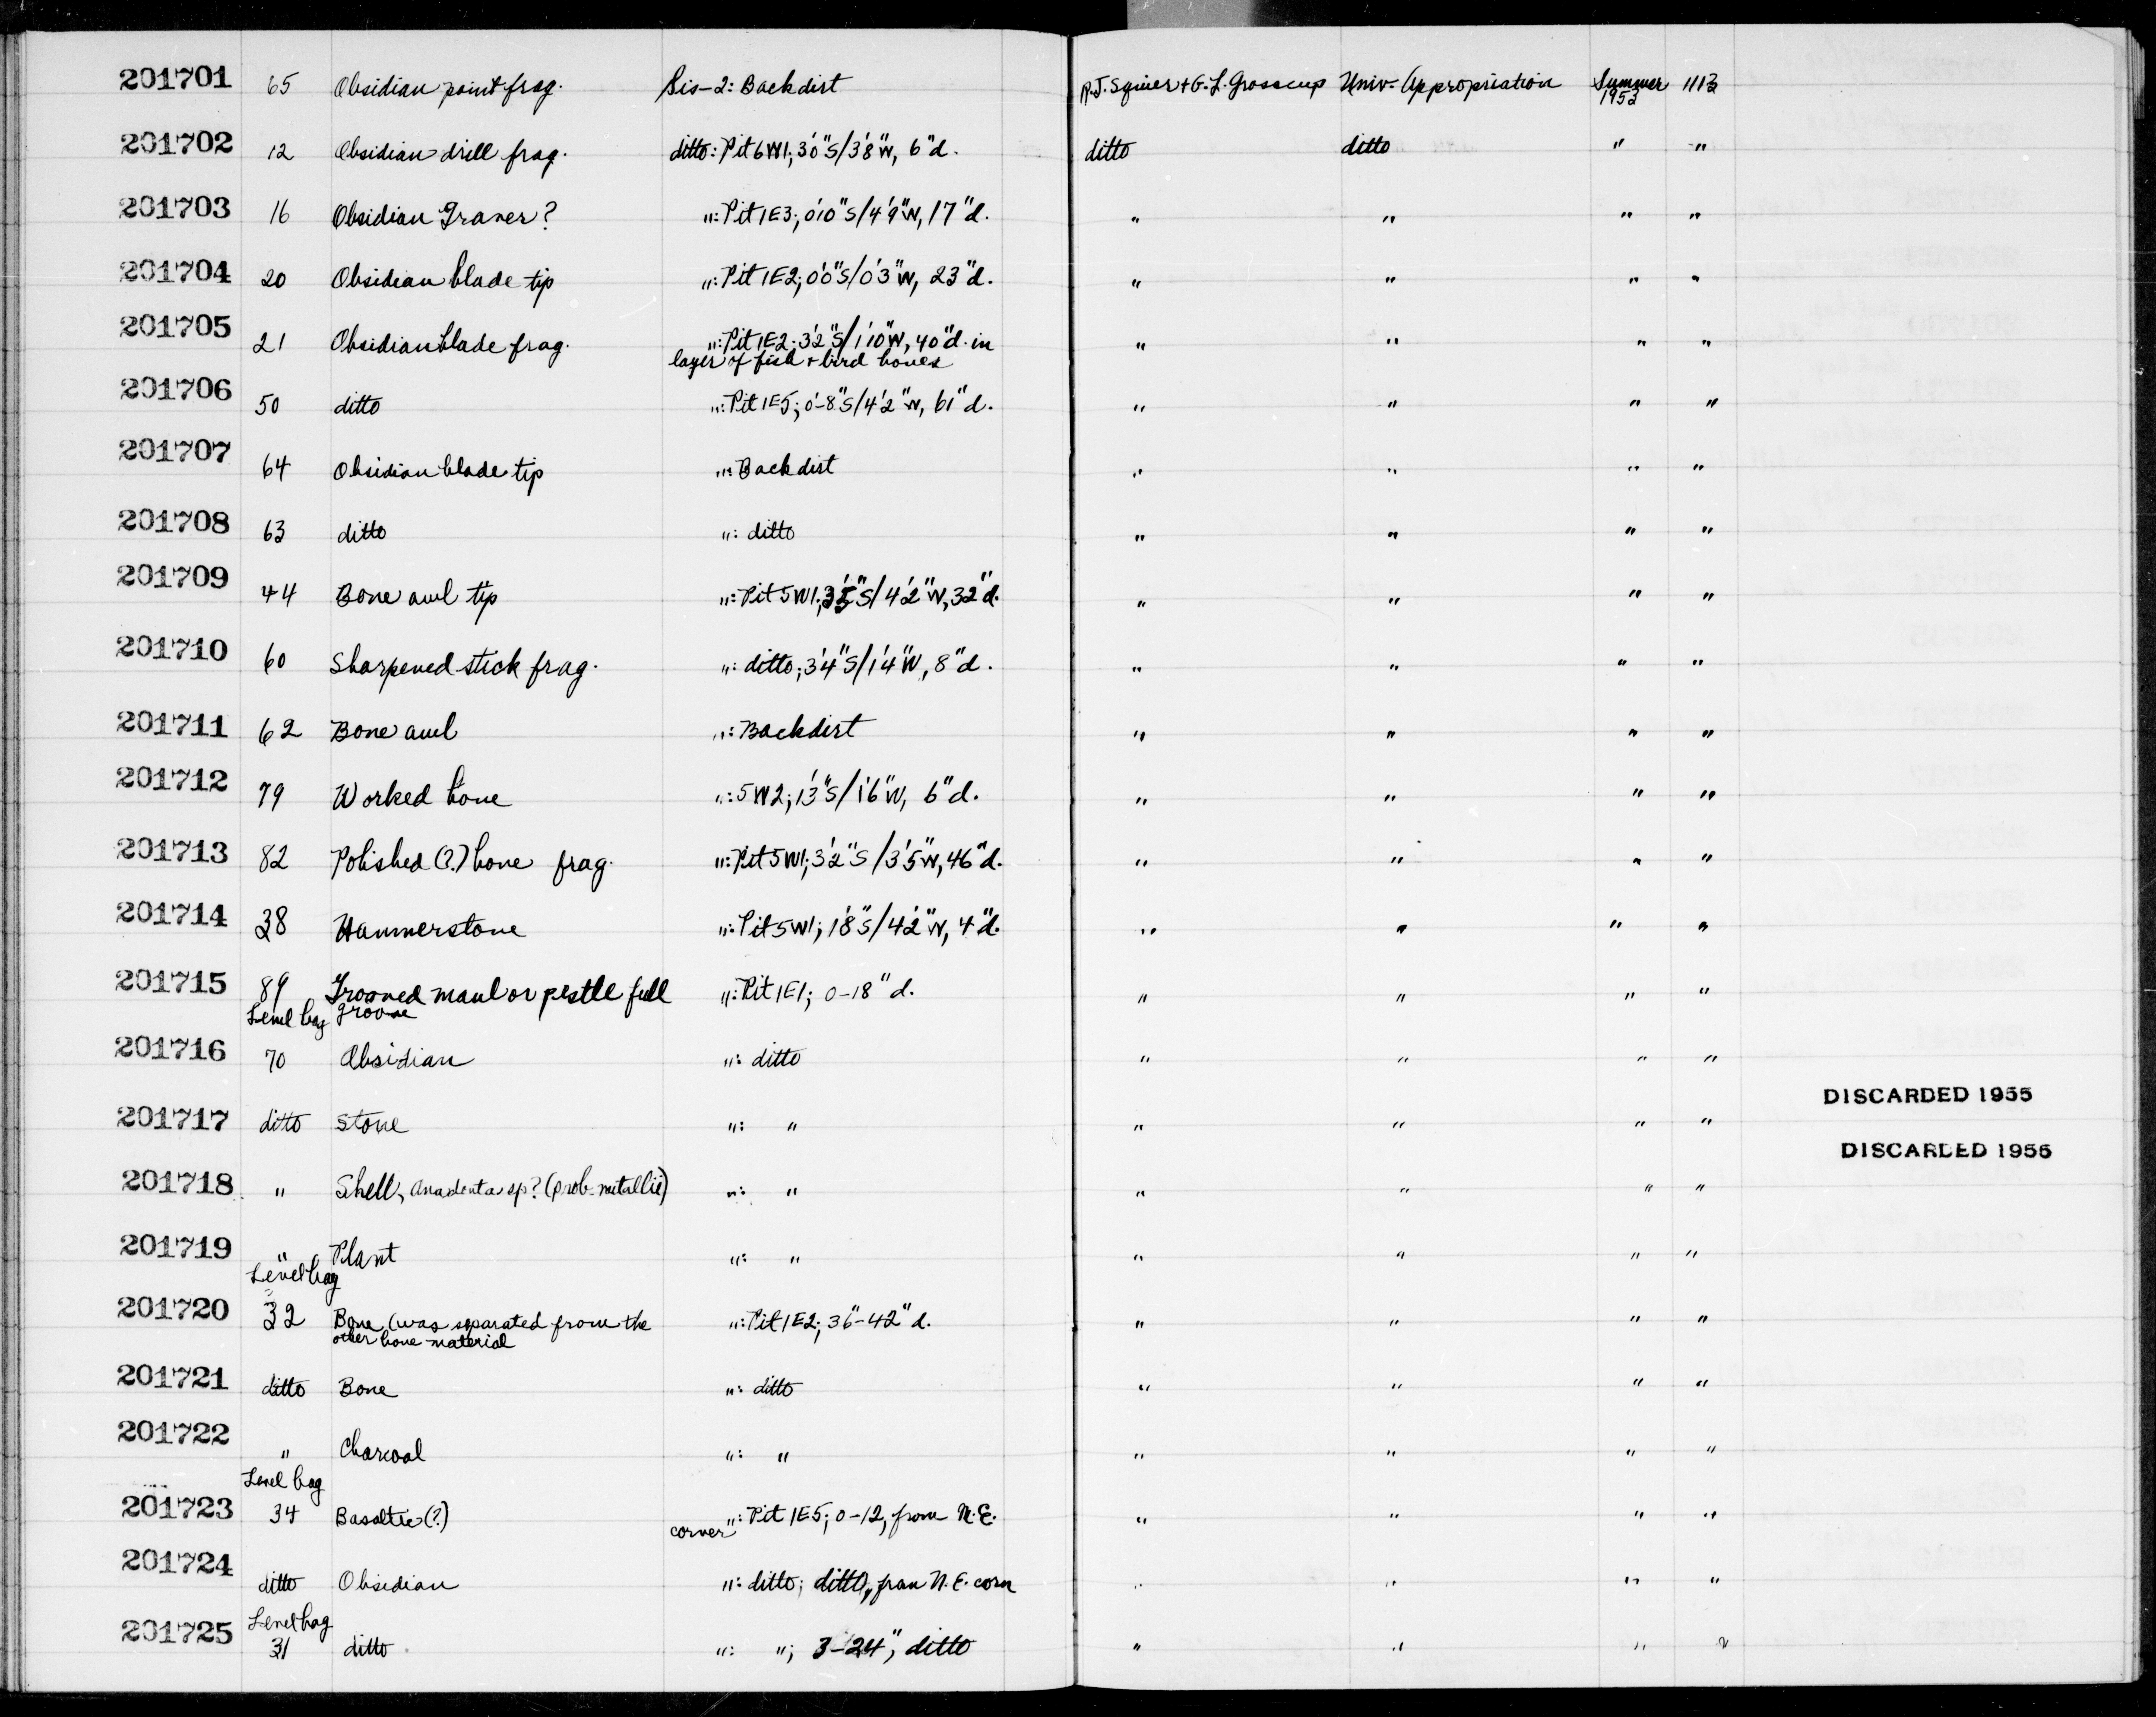 201701 65 Obsidian point frag. Sis-2: Backdirt R.J. Squier + G.L. Grosscup Univ. Appropriation Summer 1953 1113
201702 12 Obsidian drill frag. ditto: Pit 6W1; 3'0"S/3'8"W, 6"d. ditto ditto " "
201703 16 Obsidian Graver? ": Pit 1E3; 0'10"S/4'9"W, 17"d. " " " "
201704 20 Obsidian blade tip ": Pit 1E2; 0'0"S/0'3"W, 23"d. " " " "
201705 21 Obsidian blade frag. ": Pit 1E2; 3'2"S/1'10"W, 40"d. in " " " "
layer of fish + bird bones
201706 50 ditto ": Pit 1E5; 0'-8"S/4'2"W, 61"d. " " " "
201707 64 Obsidian blade tip ": Backdirt " " " "
201708 63 ditto ": ditto " " " "
201709 44 Bone awl tip ": Pit 5W1; 3'5"S/4'2"W, 32"d. " " " "
201710 60 Sharpened stick frag. ": ditto; 3'4"S/1'4"W, 8"d. " " " "
201711 62 Bone awl ": Backdirt " " " "
201712 79 Worked bone ": 5W2; 1'3"S/1'6"W, 6"d. " " " "
201713 82 Polished (?) bone frag. ": Pit 5W1; 3'2"S/3'5"W, 46"d. " " " "
201714 38 Hammerstone ": Pit 5W1; 1'8"S/4'2"W, 4"d. " " " "
201715 89 Grooved maul or pestle full ": Pit 1E1; 0-18"d. " " " "
Level bag groove
201716 70 Obsidian ": ditto " " " "
DISCARDED 1955
201717 ditto Stone ": " " " " "
DISCARDED 1955
201718 " Shell, Anadenta sp? (prob. metallic) ": " " " " "
201719 " Plant ": " " " " "
Level bag
201720 32 Bone (was separated from the ": Pit 1E2; 36"-42"d. " " " "
other bone material
201721 ditto Bone ": ditto " " " "
201722 " Charcoal ": " " " " "
Level bag
201723 34 Basaltic (?) ": Pit 1E5; 0-12, from N.E. " " " "
corner
201724 ditto Obsidian ": ditto; ditto, from N.E. corn " " " "
Level bag
201725 31 ditto ": "; 3-24", ditto " " " "